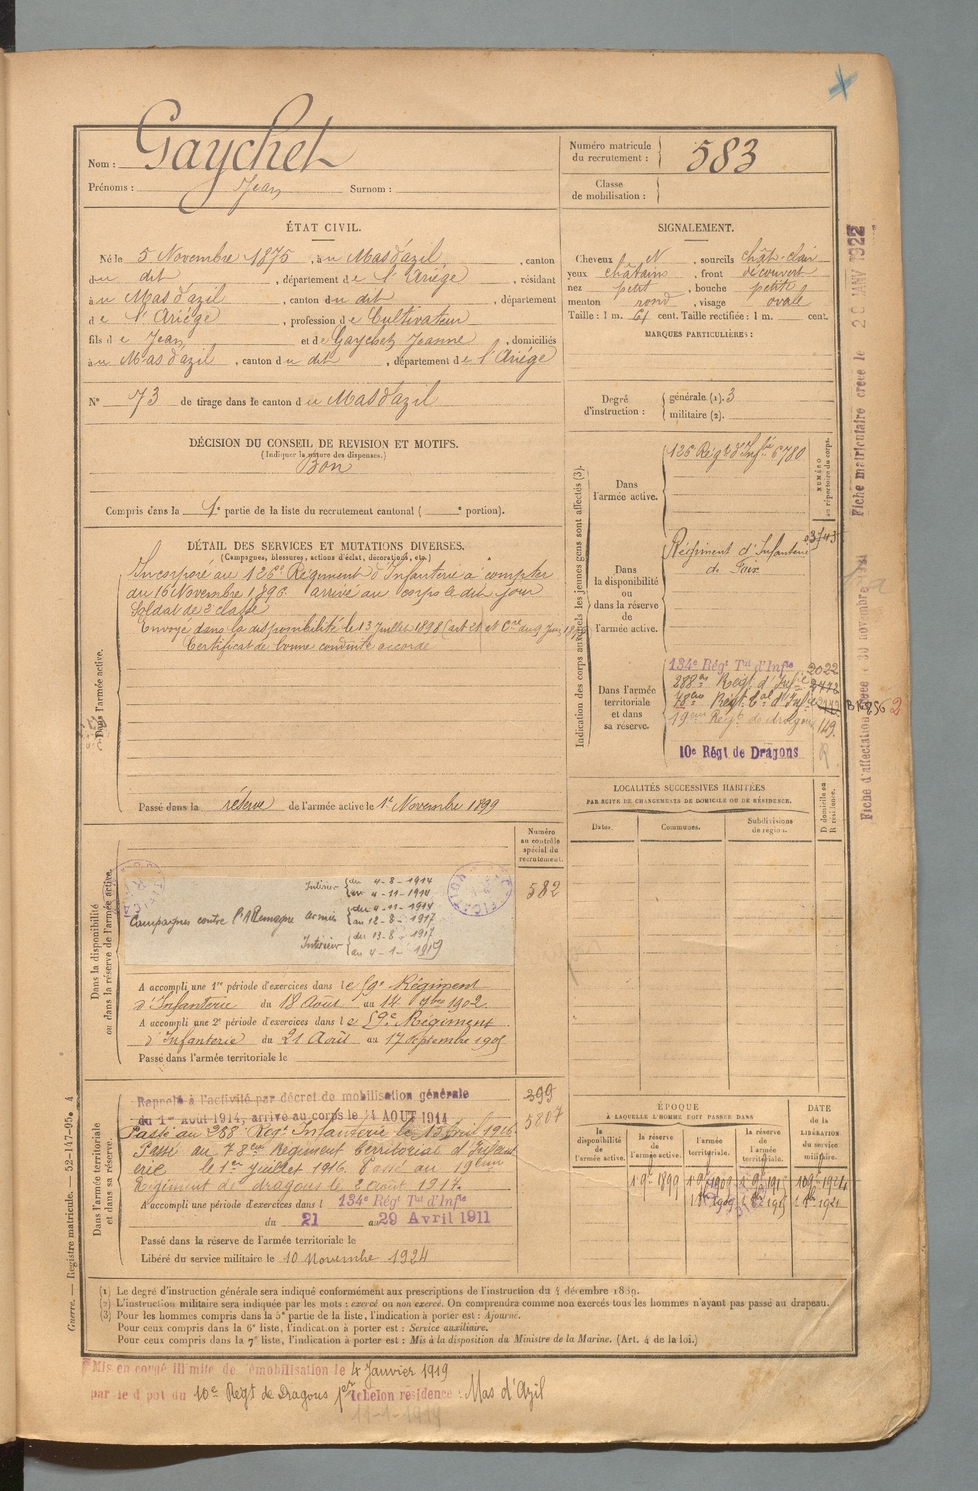 Nom : Gaychet
Prénoms : Jean Surnom :
Numéro matricule du recrutement : 583
Classe de mobilisation :
ÉTAT CIVIL.
Né le 5 Novembre 1875, à u Mas d'azil, canton
du dit, département de l'Ariége, résidant
à u Mas d'azil, canton du dit, département
de l'Ariége, profession de Cultivateur
fils de Jean et de Gaychet Jeanne, domiciliés
à u Mas d'azil, canton du dit, département de l'Ariége
N° 73 de tirage dans le canton du Mas d'azil
DÉCISION DU CONSEIL DE REVISION ET MOTIFS.
(Indiquer la nature des dispenses.)
Bon
Compris dans la 1e partie de la liste du recrutement cantonal ( e portion).
SIGNALEMENT.
Cheveux N, sourcils chât-clair
yeux châtains, front découvert
nez petit, bouche petite
menton rond, visage ovale
Taille : 1 m. 61 cent. Taille rectifiée : 1 m. cent.
MARQUES PARTICULIÈRES :
Degré d'instruction : générale (1). 3
militaire (2).
DÉTAIL DES SERVICES ET MUTATIONS DIVERSES.
(Campagnes, blessures, actions d'éclat, décorations, etc.)
Dans l'armée active.
Incorporé au 126e Régiment d'Infanterie à compter
du 16 Novembre 1896. arrivé au corps le dit jour
Soldat de 2e classe
Envoyé dans la disponibilité le 13 Juillet 1898
Certificat de bonne conduite accordé
Passé dans la réserve de l'armée active le 1er Novembre 1899
Indication des corps auxquels les jeunes gens sont affectés (3).
NUMÉRO au répertoire du corps.
Dans l'armée active.
126e Régt d'Infie 6780
Dans la disponibilité ou dans la réserve de l'armée active.
Régiment d'Infanterie
de Foix
03743
Dans l'armée territoriale et dans sa réserve.
134e Régt Tal d'Infie 2022
288e Régt d'Infie
78eme Régt Tal d'Infie
19eme Régt de dragons 149
10e Régt de Dragons
LOCALITÉS SUCCESSIVES HABITÉES
PAR SUITE DE CHANGEMENTS DE DOMICILE OU DE RÉSIDENCE.
Dates. Communes. Subdivisions de région. D domicile ou R résidence.
Numéro au contrôle spécial du recrutement.
582
Dans la disponibilité ou dans la réserve de l'armée active.
Campagnes contre l'Allemagne
Intérieur du 4-8-1914
au 4-11-1914
armées du 4-11-1914
au 12-8-1917
Intérieur du 13-8-1917
au 4-1-1919
A accompli une 1re période d'exercices dans le 59e Régiment
d'Infanterie du 18 Août au 14 7bre 1902
A accompli une 2e période d'exercices dans le 59e Régiment
d'Infanterie du 21 Août au 17 septembre 1905
Passé dans l'armée territoriale le
Dans l'armée territoriale et dans sa réserve.
Rappelé à l'activité par décret de mobilisation générale
du 1er août 1914, arrivé au corps le 4 AOUT 1914
399
5807
Passé au 288e Régt Infanterie le 13 Avril 1916.
Passé au 78eme Régiment territorial d'Infant
erie le 1er Juillet 1916. Passé au 19eme
Régiment de dragons le 2 août 1917.
A accompli une période d'exercices dans l 134e Régt Tal d'Infie
du 21 au 29 Avril 1911
Passé dans la réserve de l'armée territoriale le
Libéré du service militaire le 10 Novembre 1924
ÉPOQUE
À LAQUELLE L'HOMME DOIT PASSER DANS
la disponibilité de l'armée active. la réserve de l'armée active. l'armée territoriale. la réserve de l'armée territoriale.
DATE de la LIBÉRATION du service militaire.
1 9bre 1899
(1) Le degré d'instruction générale sera indiqué conformément aux prescriptions de l'instruction du 4 décembre 1889.
(2) L'instruction militaire sera indiquée par les mots : exercé ou non exercé. On comprendra comme non exercés tous les hommes n'ayant pas passé au drapeau.
(3) Pour les hommes compris dans la 5e partie de la liste, l'indication à porter est : Ajourné.
Pour ceux compris dans la 6e liste, l'indication à porter est : Service auxiliaire.
Pour ceux compris dans la 7e liste, l'indication à porter est : Mis à la disposition du Ministre de la Marine. (Art. 4 de la loi.)
Mis en congé illimité de démobilisation le 4 Janvier 1919
par le dépôt du 10e Régt de Dragons 1er échelon résidence : Mas d'Azil
Guerre. — Registre matricule. — 52-147-95. 4
Fiche matriculaire créée le 20 JANV 1922
Fiche d'affectation créée 30 novembre